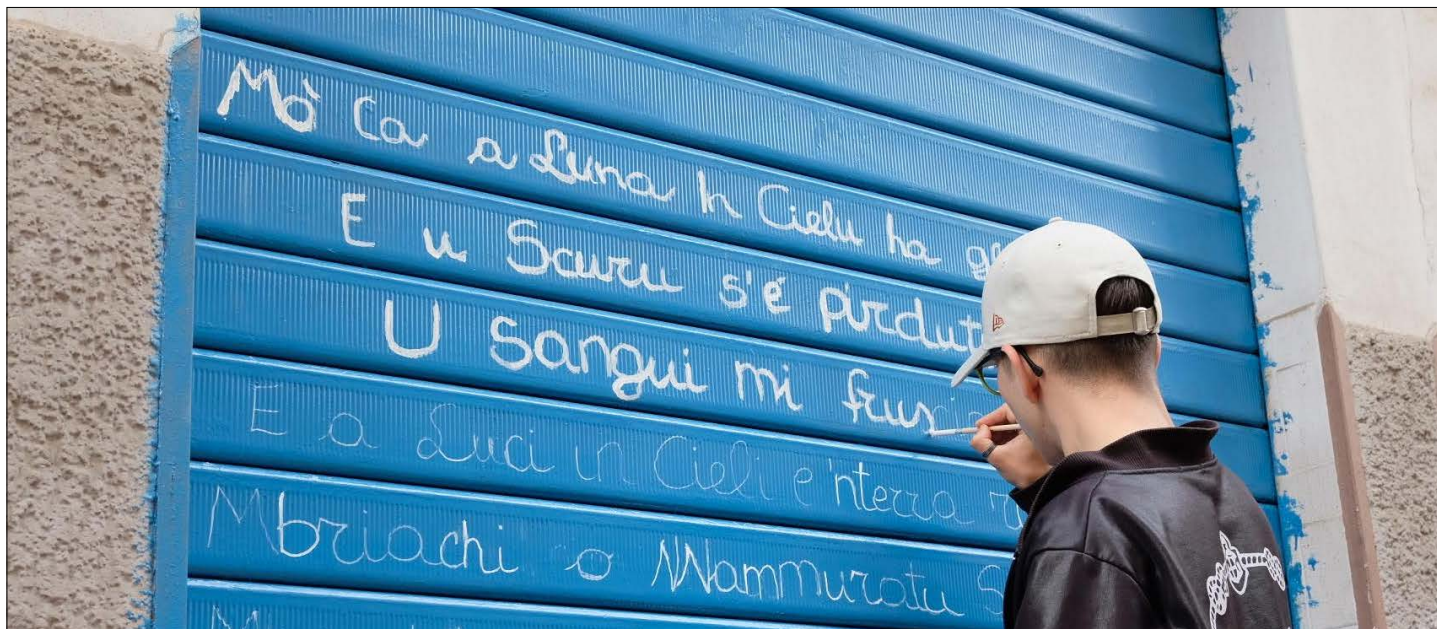 Mò Ca a Luna in Cielu ha
E u Scuru s'é
U sangui mi
E a Luci in Cieli e 'nterra
Mbriachi o NNammuratu